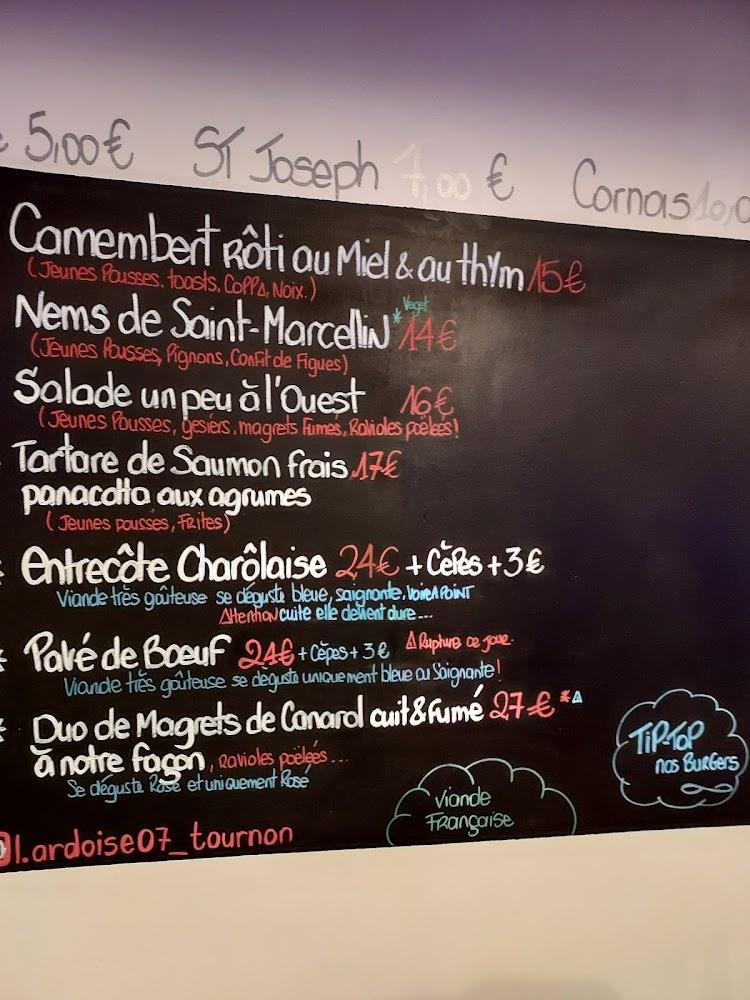 5,00€ ST Joseph 7,00 € Cornas 10,0
Camembert Rôti au Miel & au thym 15€
(Jeunes Pousses. toasts, Coppa, Noix.)
Nems de Saint-Marcellin* Veget 14€
(Jeunes Pousses, Pignons, Confit de Figues)
Salade un peu à l'Ouest 16€
(Jeunes Pousses, gesiers, magrets Fumés, Ravioles poëlées!
Tartare de Saumon frais 17€
panacotta aux agrumes
(Jeunes pousses, Frites)
* Entrecôte Charôlaise 24€ + Cèpes + 3€
Viande très goûteuse se déguste bleue, saignante, voire A POINT
Attention cuite elle devient dure...
* Pavé de Boeuf 24€ + Cèpes + 3€ Δ Rupture ce jour.
Viande très goûteuse se déguste uniquement bleue ou Saignante!
* Duo de Magrets de Canard cuit & Fumé 27€ *Δ
à notre façon, ravioles poëleés...
Se déguste Rosé et uniquement Rosé
TIP-TOP
nos BURGERS
Viande
Française
l.ardoise07_tournon